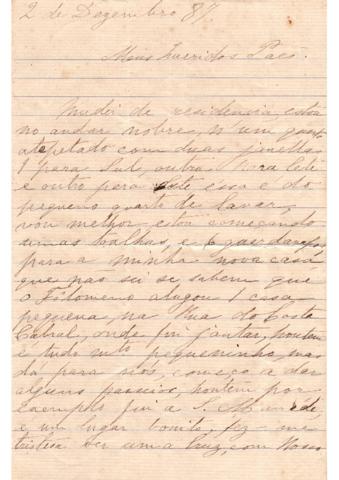 2 de Dezembro 87.
Meus Queridos Paes.
Mudei de residencia, estou
no andar nobres, n'um quarto
atapetado com duas janellas
1 para Sul, outra para Leste
e outro para Este essa e do
pequeno quarto de lavar,
vou melhor estou começando
umas toalhas, e
para a minha nova casa
que não sei se sabem que
o Filomeno alugou 1 casa
pequena, na Rua do Costa
Cabral, onde fui jantar, hontem
é tudo mto pequeninho, mas
dá para nós, começo a dar
alguns passeios, hontem por
exemplo fui a S. Mamede
é um lugar bonito, fez-me
tristesa ver uma Cruz, com Nosso